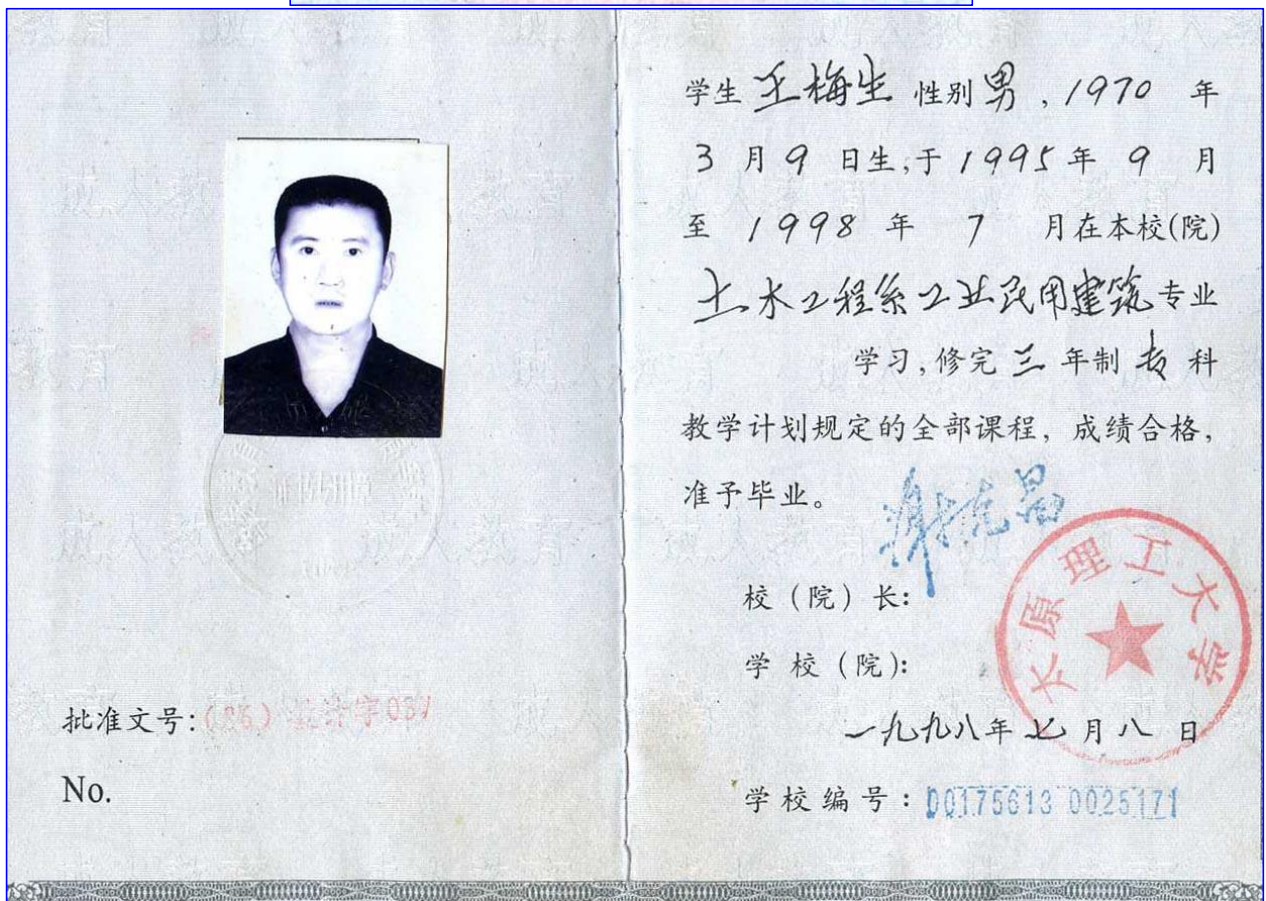 批准文号:
No.
学生 王梅生 性别 男 , 1970 年
3 月 9 日生,于 1995 年 9 月
至 1998 年 7 月在本校(院)
土木工程系工业民用建筑 专业
学习,修完 三 年制 专 科
教学计划规定的全部课程,成绩合格,
准予毕业。
校(院)长:
太原理工大学
学校(院):
一九九八年七月八日
学校编号: 00175613 0025171